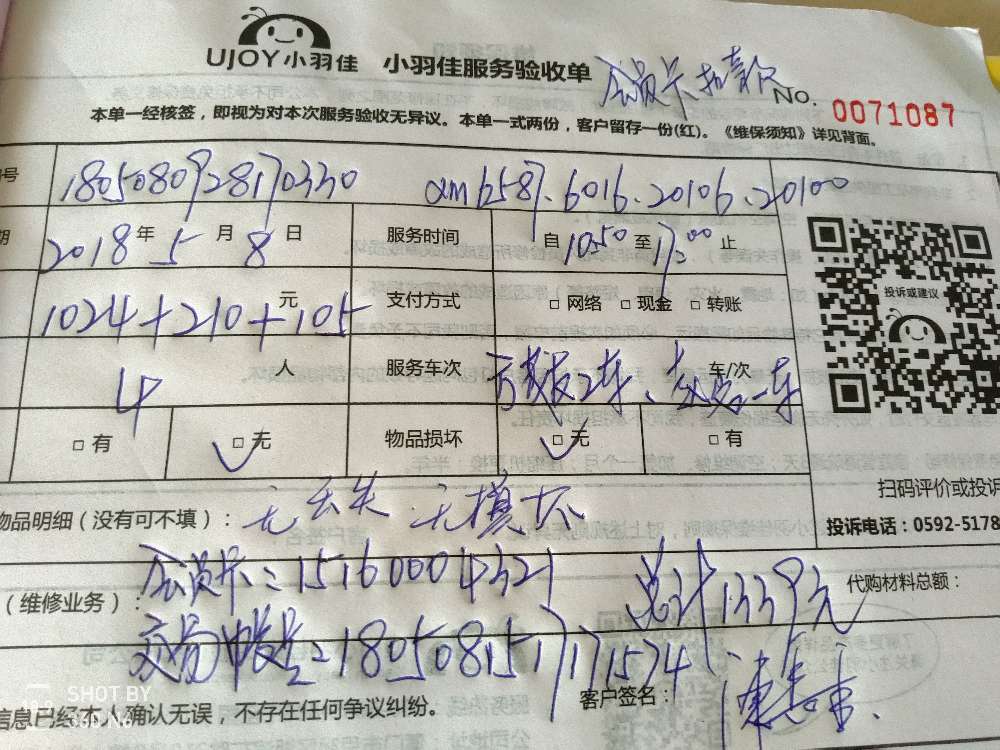 UJOY小羽佳 小羽佳服务验收单 会员卡扣款
No. 0071087
本单一经核签，即视为对本次服务验收无异议。本单一式两份，客户留存一份(红)。《维保须知》详见背面。
号 1805080928170330 am6587.6016.20106.20100
期 2018年5月8日 服务时间 自10:50至17:00止
1024+210+105元 支付方式 □网络 □现金 □转账
投诉或建议
4人 服务车次 2车、一车 车/次
□有 □无 物品损坏 □无 □有
扫码评价或投诉
物品明细（没有可不填）：无丢失 无损坏
投诉电话：0592-5178
会员卡：15160004321 总计1339元 代购材料总额：
（维修业务）：
交易帐号：1805081517171574
客户签名：
信息已经本人确认无误，不存在任何争议纠纷。
SHOT BY